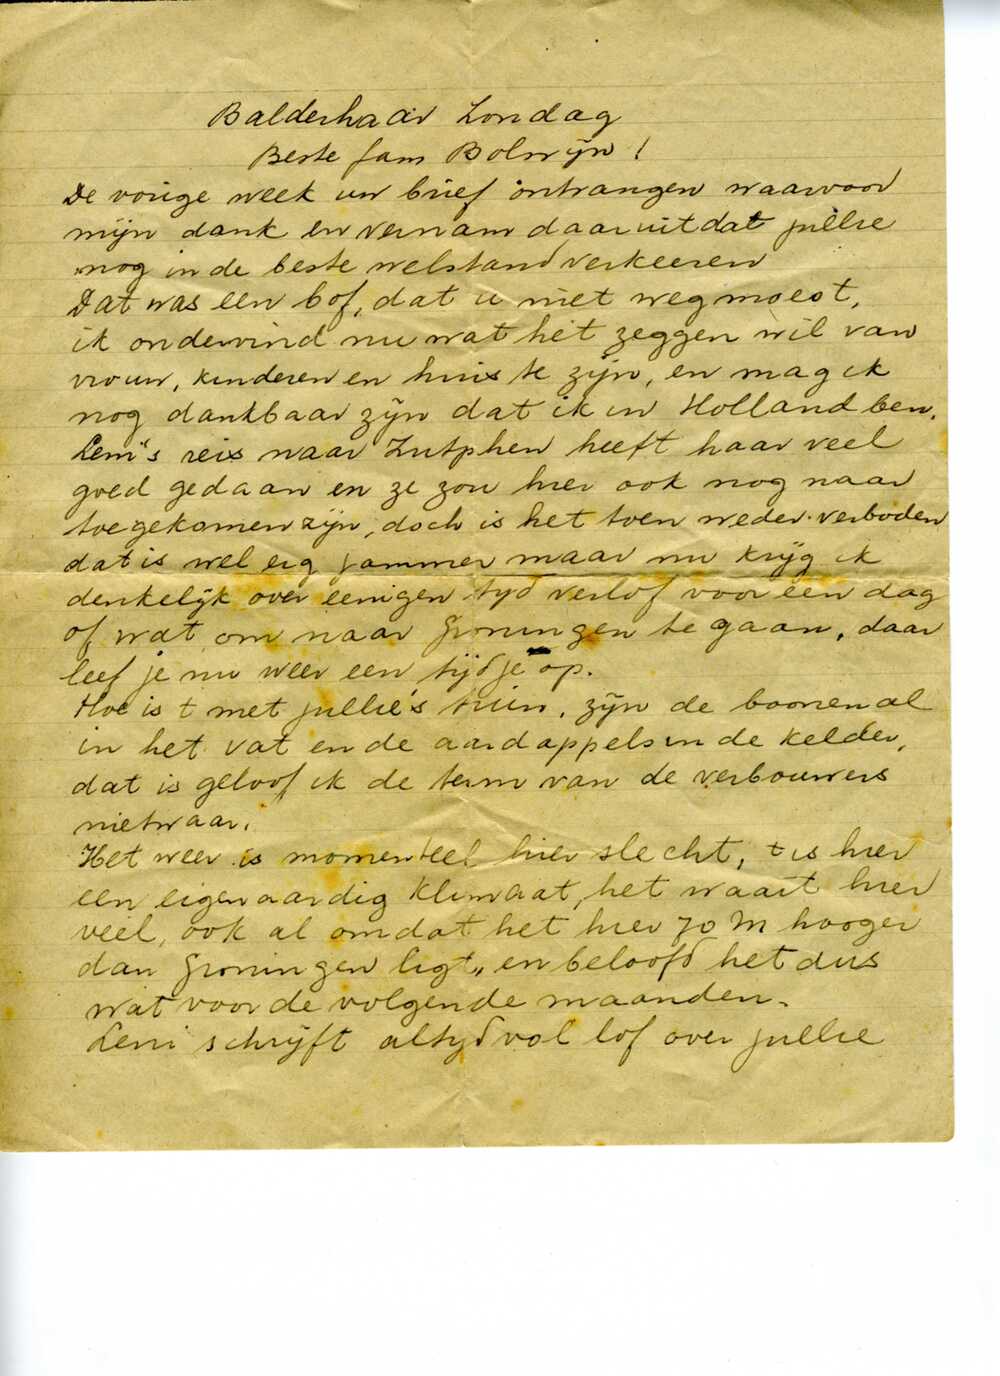 Balderhaar Zondag
Beste fam Bolwijn!
De vorige week uw brief ontvangen waarvoor
mijn dank en vernam daaruit dat jullie
nog in de beste welstand verkeeren
Dat was een bof, dat u niet weg moest,
ik ondervind nu wat het zeggen wil van
vrouw, kinderen en huis te zijn, en mag ik
nog dankbaar zijn dat ik in Holland ben.
Leni's reis naar Zutphen heeft haar veel
goed gedaan en ze zou hier ook nog naar
toegekomen zijn, doch is het toen weder verboden
dat is wel erg jammer maar nu krijg ik
denkelijk over eenigen tijd verlof voor een dag
of wat om naar Groningen te gaan, daar
leef je nu weer een tijdje op.
Hoe is t met jullie's tuin, zijn de boonen al
in het vat en de aardappels in de kelder,
dat is geloof ik de term van de verbouwers
nietwaar.
Het weer is momenteel hier slecht, t is hier
een eigenaardig klimaat, het waait hier
veel, ook al omdat het hier 70 M hooger
dan Groningen ligt,, en beloofd het dus
wat voor de volgende maanden.
Leni schrijft altijd vol lof over jullie